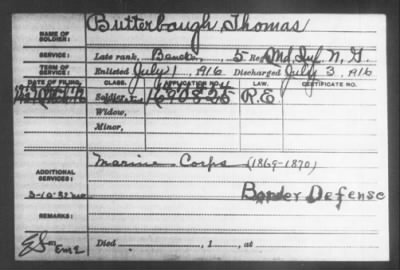 NAME OF SOLDIER: Butterbaugh, Thomas
SERVICE: Late rank, 5 Reg Md. Inf. N. G.
TERM OF SERVICE: Enlisted July 1, 1916. Discharged July 3, 1916
DATE OF FILING. CLASS. APPLICATION NO. LAW. CERTIFICATE NO.
Soldier, R.E
Widow,
Minor,
ADDITIONAL SERVICES: Marine Corps (1869-1870)
Border Defense
REMARKS:
Died , 1 , at